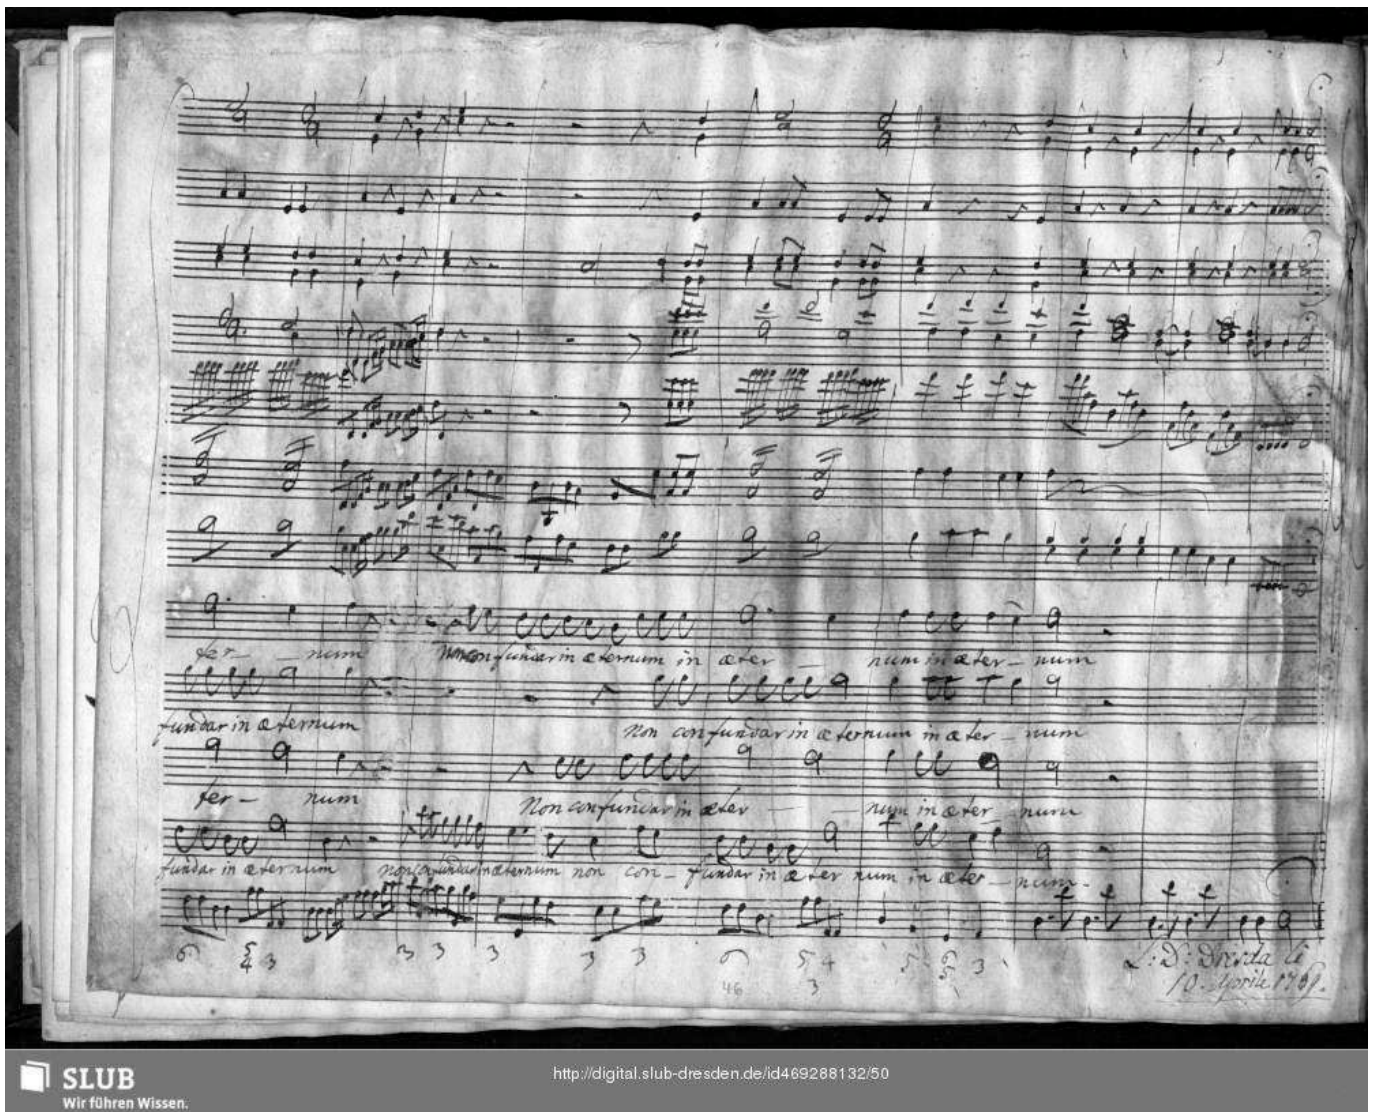 ter - - num Non confundar in æternum in æter - num in æter - num
fundar in æternum Non confundar in æternum in æter - num
ter - num Non confundar in æter - - num in æter num
fundar in æternum non confundar in æternum non con - fundar in æter num in æter - num.
6 5 3 3 3 3 3 3 6 5 4 5 6 3
4 3 5
46
L: D: Dresda li
10. Aprile 17
SLUB
Wir führen Wissen.
http://digital.slub-dresden.de/id469288132/50